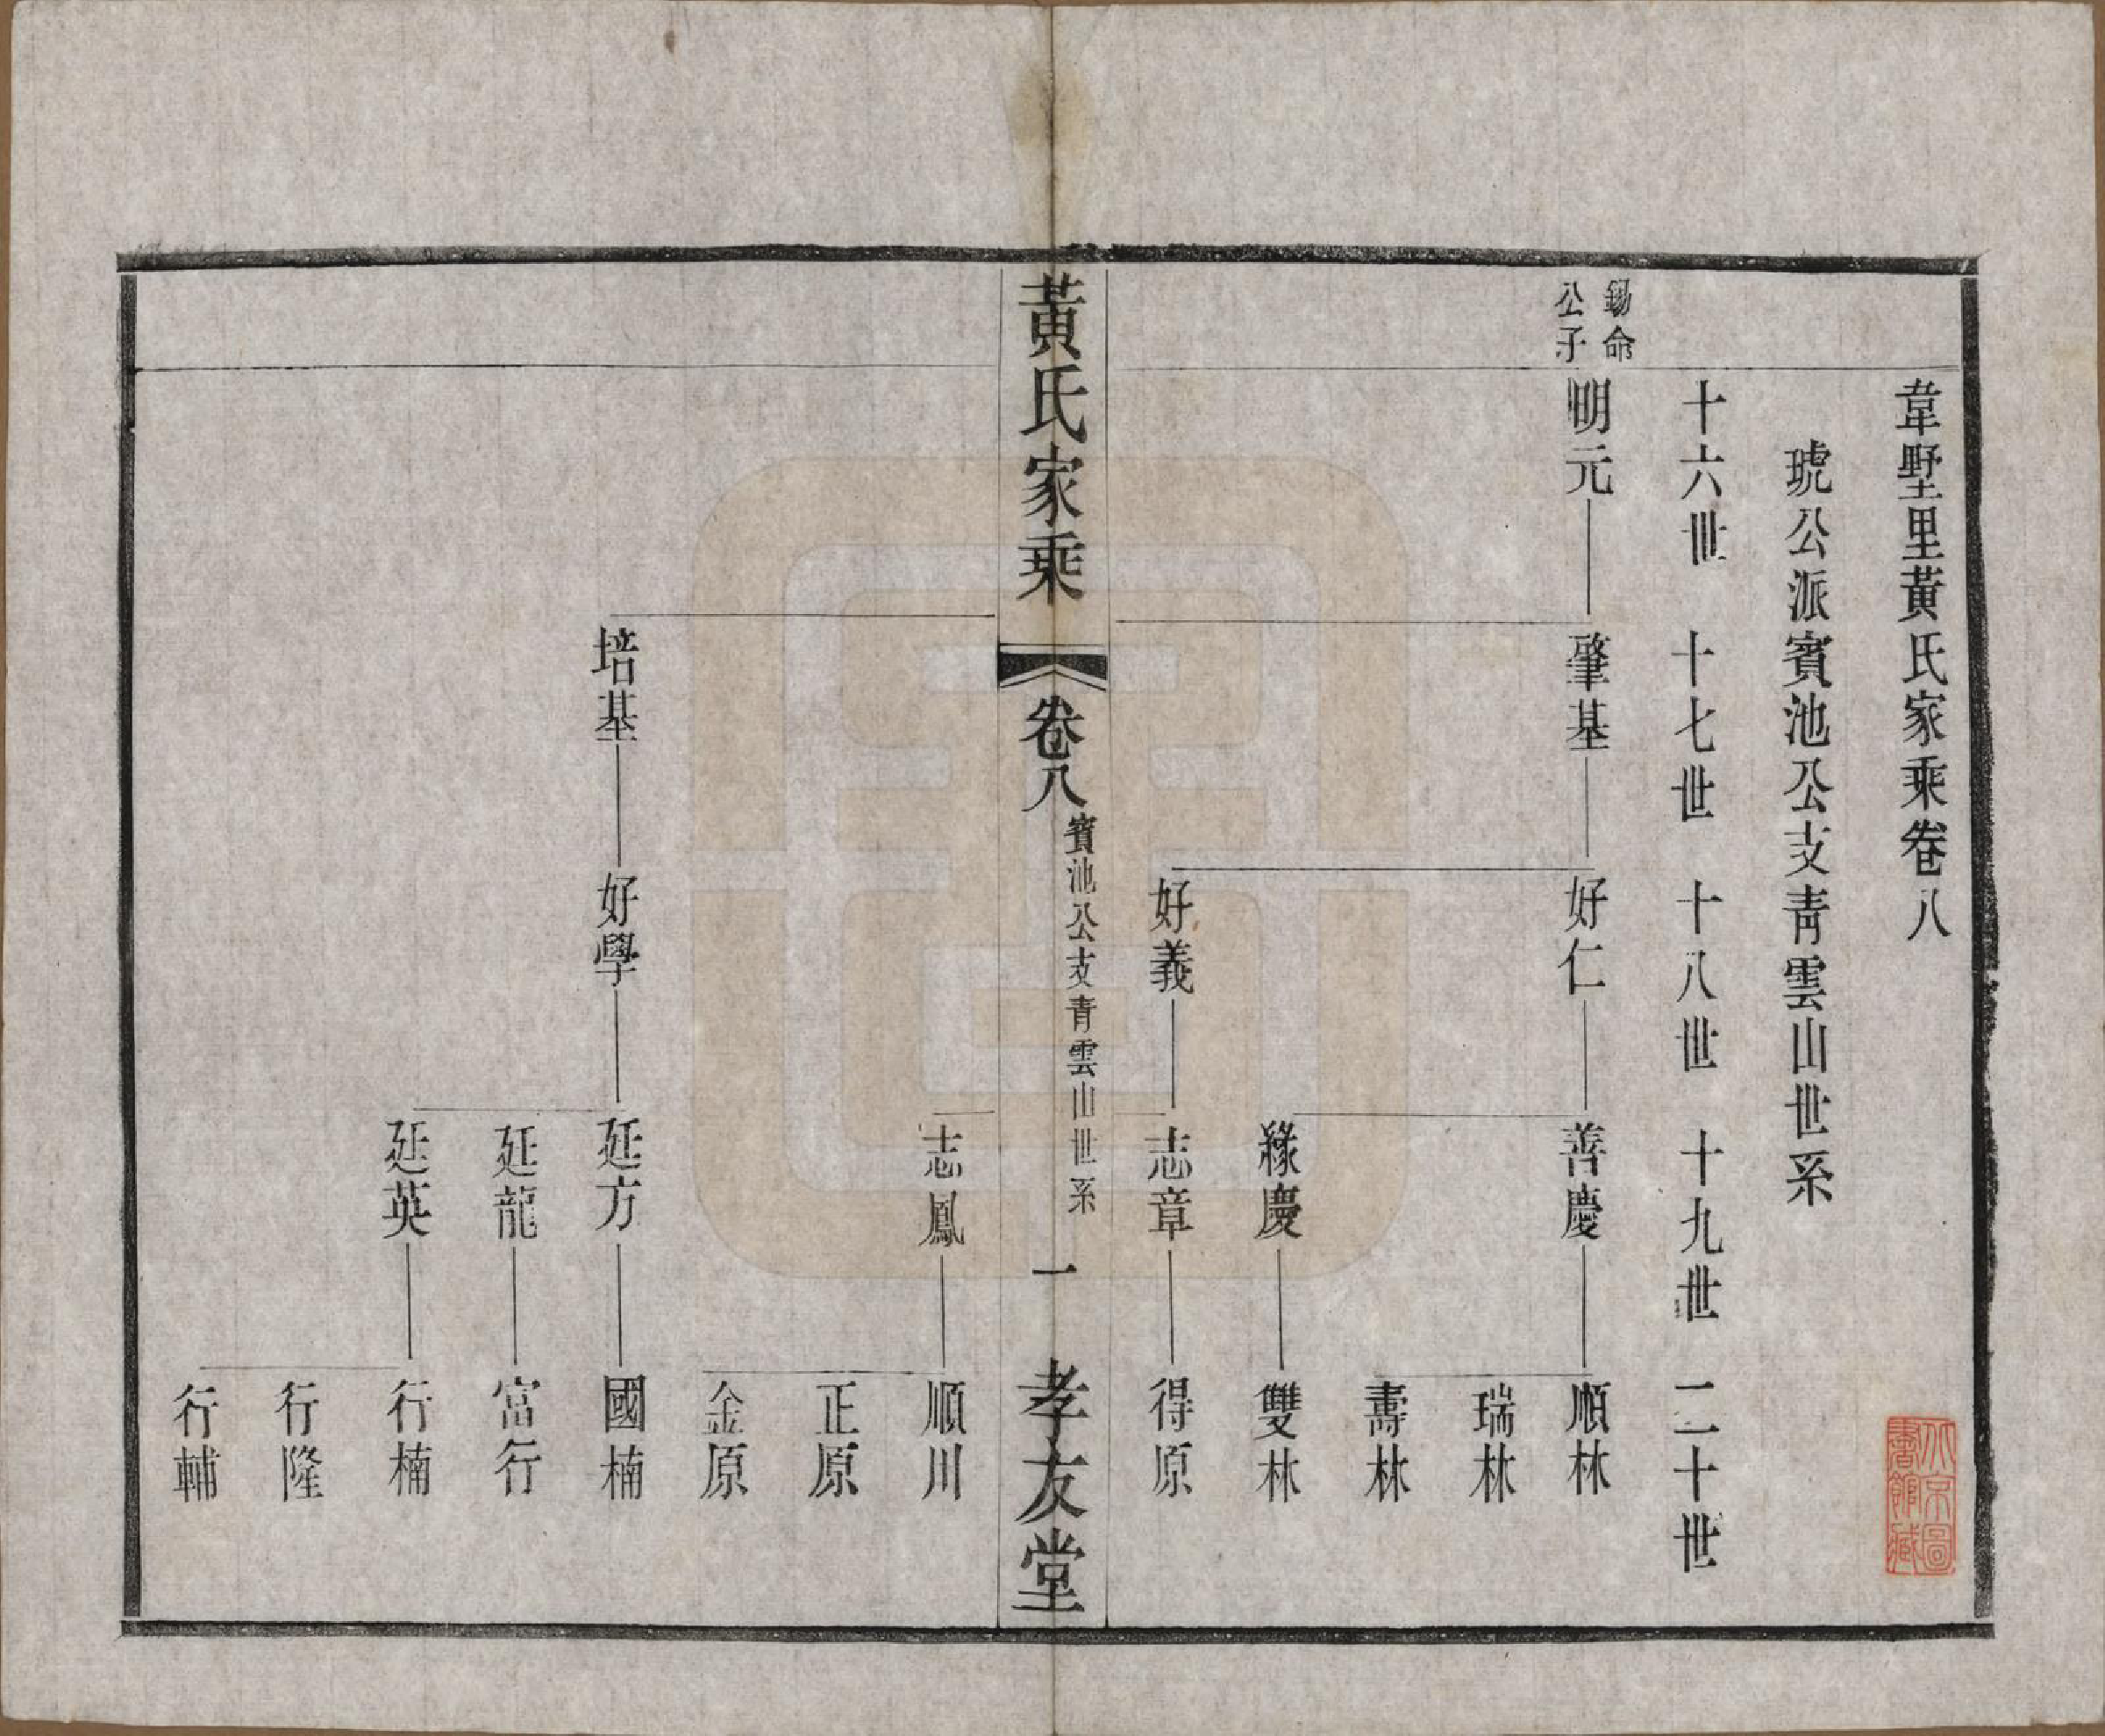 韋墅里黃氏家乘卷八
琥公派賓池公支青雲山世系
十六世 十七世 十八世 十九世 二十世
錫命
公子
明元 肇基 好仁 善慶 順林
瑞林
壽林
緣慶 雙林
好義 志章 得原
黃氏家乘 卷八 賓池公支青雲山世系 一 孝友堂
志鳳 順川
正原
金原
培基 好學 延方 國楠
延龍 富行
延英 行楠
行隆
行輔
北京圖
書館藏